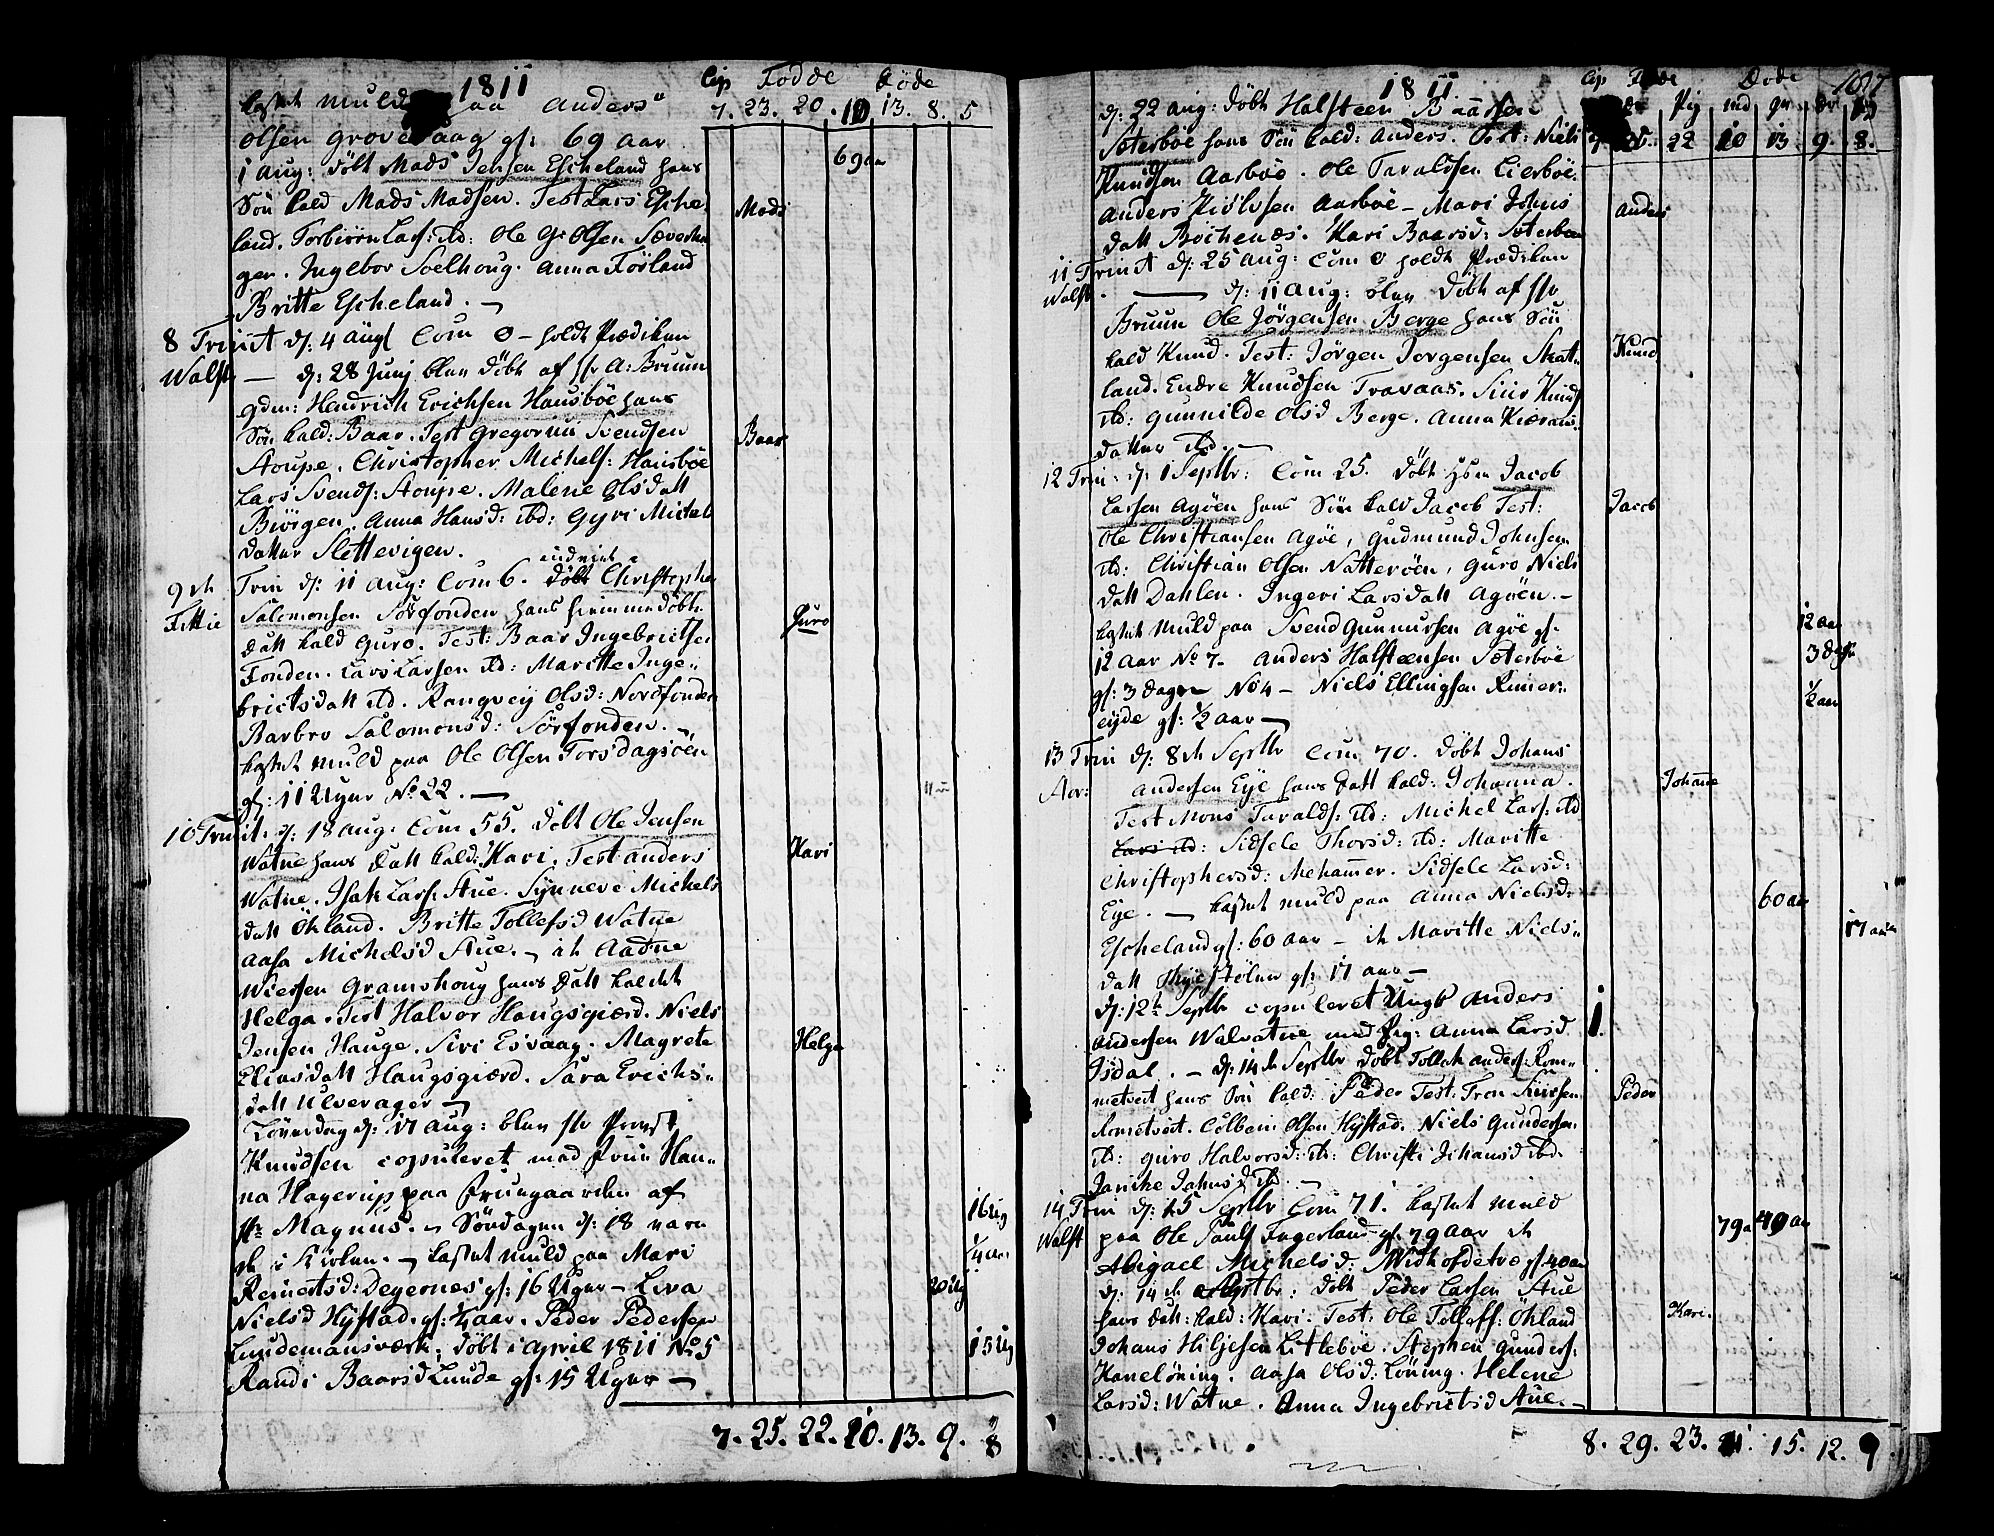 1811
Cop Fødde Døde
kastet muld paa Anders
7. 23. 20. 10 13. 8. 5
Olsen Grovevaag gl: 69 aar
69 aar
1 Aug: døbt Mads Jensen Escheland hans
Søn kald Mads Madsen. Test Lars Esche
Mads
land. Torbiørn Lars: ibd: Ole Gr Olsen Sæverha
gen. Ingebor Soelhoug. Anna Førland
Britte Escheland. —
8 Trinit d: 4 Aug Com 0 — holdt Prædiken
Walst — d: 28 Junj blev døbt af Hr A: Bruun
gdm: Hendrich Erichsen Hausbøe hans
Søn kald: Baar. Test Gregorius Svendsen
Baar
Stoupe. Christopher Michels: Hausbøe
Lars Svends: Stoupe. Malene Olsdatt
Biørgen. Anna Hansd: ibd: Gyri Michels
datter Slettevigen.
9de Trin d: 11 Aug: Com 6. døbt Christopher
Fittie Salomonsen Sørfonden hans hiemmedøbte
Datt kald Guro. Test: Baar Ingebrictsen
Guro
Fonden. Lars Larsen ibd: Maritte Inge
brictsdatt ibd. Rangvey Olsd: Nordfonden
Barbro Salomonsd: Sørfonden. —
kastet muld paa Ole Olsen Torsdagsøen
gl: 11 Uger No 22. —
10 Trinit. d: 18 Aug: Com 55. døbt Ole Jensen
Watne hans Datt kald: Kari. Test Anders
Kari
Watne. Isak Lars: Aue. Synneve Michels
datt Økland. Britte Tollefsd Watne
Aasa Michelsd Aue. — it Aadne
Wiersen Gramshoug hans Datt kaldet
Helga. Test Halvor Haugsgierd. Niels
Jensen Hauge. Siri Eivaag. Magrete
Helga
Eliasdatt Haugsgierd. Sara Erichs
datt Ulverager —
Løverdag d: 17 Aug: blev Hr Provst
Knudsen copuleret med Frue Han
na Hagerup paa Prungaarden af
Hr Magnus. — Søndagen d: 18 vare
de i Kirken. — kastet muld paa Mari
16 Ug
Reinertsd: Degernes gl: 16 Uger — Liva
¼ aar
Nielsd Hystad. gl: ¼ aar. Peder Pedersen
20 Ug
Lundemansværk. døbt i April 1811 No 5
Randi Baarsd Lunde gl: 15 Uger —
15 Ug
7. 25. 22. 10. 13. 9. 8
1811
Cop Fødde Døde
107
d: 22 Aug: døbt Halsteen Baarsen
Pig md qv
Sæterbøe hans Søn kald: Anders. Test: Niels
7 25. 22 10 13. 9. 8.
Knudsen Aarbøe. Ole Taraldsen Lierbøe
Anders Aarbøe — Mari Johns
Anders
datt Bochenæs. Kari Baarsd: Sæterbøe
11 Trinit d: 25 Aug: Com 0 holdt Prædiken
Walst. — d: 11 Aug: blev døbt af Hr
Bruun Ole Jørgensen Berge hans Søn
kald Knud. Test: Jørgen Jørgensen Skat
Knud
land. Endre Knudsen Travaas. Siur Knuds
ibd: Gunnilde Olsd Berge. Anna
datter ibd. —
12 Trin. d: 1 Septbr: Com 25. døbt Jacob
Larsen Agøen hans Søn kald Jacob Test:
Jacob
Ole Christiansen Agøe, Gudmund Johnsen
ibd: Christian Olsen Natterøen, Guro Niels
datt Dahlen. Ingeri Larsdatt Agøen. —
kastet muld paa Svend Gunnursen Agøe gl.
12 aar
12 Aar No 7. Anders Halsteensen Sæterbøe
3 dage
gl: 3 dager No 4 — Niels Ellingsen Rimer
½ aar
eyde gl: ½ aar —
13 Trin d: 8de Septbr Com 70. døbt Johans
Aor: Andersen Eye hans Datt kald: Johanna.
Johanne
Test Mons Taralds: ibd: Michel Lars: ibd
Lars ibd: Sidsele Thorsd: ibd: Maritte
Christophersd: Mehammer. Sidsele Larsd:
Eye. — kastet muld paa Anna Nielsd:
60 aar
Escheland gl: 60 aar — it Maritte Niels
17 aar
datt gl: 17 aar —
d: 12te Septbr copuleret Ungk Anders
1.
Andersen Walvatne med Pig: Anna Larsd
Isdal. — d: 14de Septbr døbt Tollak Anders: Rom
metvert hans Søn kald: Peder Test: Tron Siursen
Peder
Rometvert. Colbein Olsen Hystad. Niels Gundersen
ibd: Guro Halvorsd: ib: Christi Johansd ibd.
Janike Jahnsd ibd —
14 Trin d: 15 Septbr Com 71. kastet muld
Walst paa Ole Pauls Fagerland gl. 79 Aar it
79a 40 aar
Abigael Michelsd: gl 40 aar
d: 14de Septbr: døbt Peder Larsen Aue
hans Datt: kald: Kari: Test: Ole Tolleff: Økland
Kari.
Johans Hiljesen Litlebøe. Stephen Gunders:
Haneløning. Aasa Olsd: Løning. Helene
Larsd: Watne. Anna Ingebrictsd Aue. —
8. 29. 23. 11 15. 12. 9